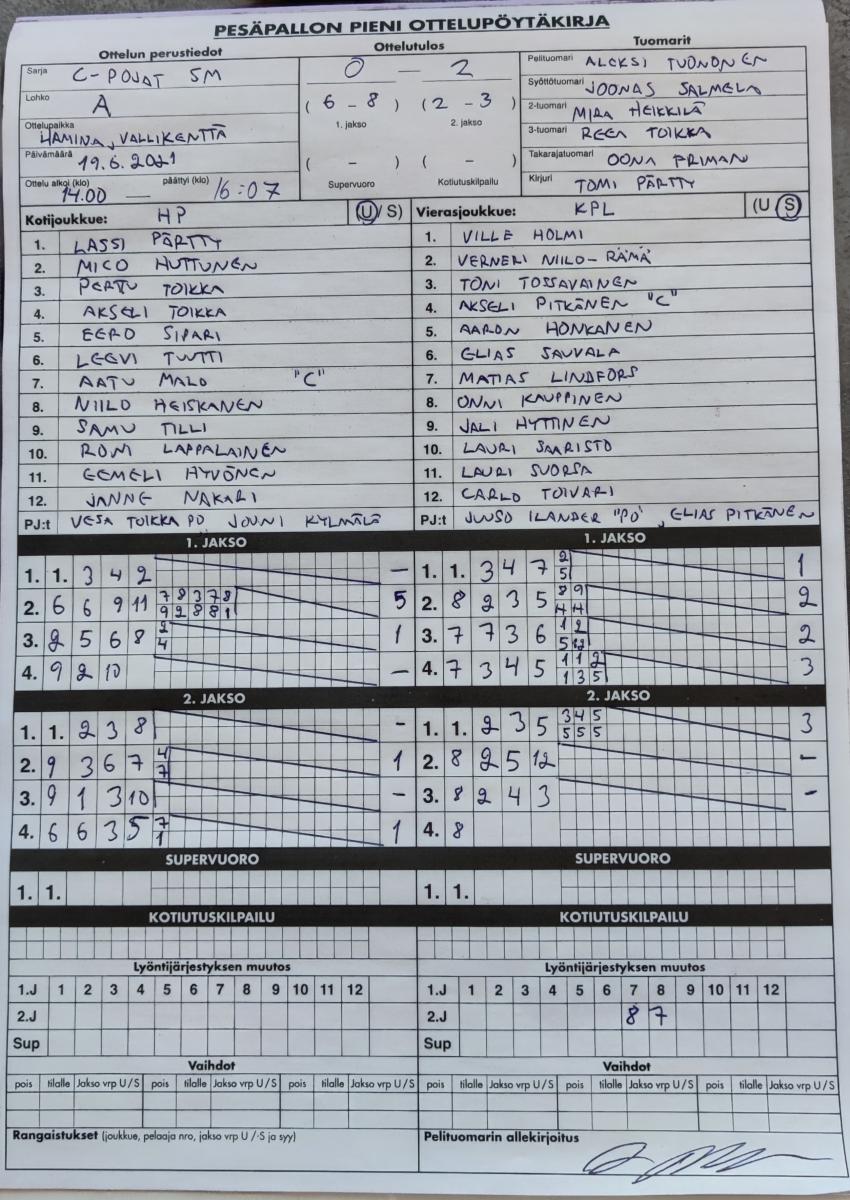 PESÄPALLON PIENI OTTELUPÖYTÄKIRJA
Ottelun perustiedot Ottelutulos Tuomarit
Sarja C-POJAT SM
Lohko A
Ottelupaikka HAMINA, VALLIKENTTÄ
Päivämäärä 19.6.2021
Ottelu alkoi (klo) 14.00 — päättyi (klo) 16:07
0 — 2
(6 - 8) (2 - 3)
1. jakso 2. jakso
( - ) ( - )
Supervuoro Kotiutuskilpailu
Pelituomari ALEKSI TUONONEN
Syöttötuomari JOONAS SALMELA
2-tuomari MIRA HEIKKILÄ
3-tuomari REEA TOIKKA
Takarajatuomari OONA PRIMAN
Kirjuri TOMI PÄRTTY
Kotijoukkue: HP (U/S)
1. LASSI PÄRTTY
2. MICO HUTTUNEN
3. PERTU TOIKKA
4. AKSELI TOIKKA
5. EERO SIPARI
6. LEEVI TUUTTI
7. AATU MALO "C"
8. NIILO HEISKANEN
9. SAMU TILLI
10. RONI LAPPALAINEN
11. EEMELI HYVÖNEN
12. JANNE NAKARI
PJ:t VESA TOIKKA PD, JOUNI KYLMÄLÄ
Vierasjoukkue: KPL (U S)
1. VILLE HOLMI
2. VERNERI NIILO-RÄMÄ
3. TONI TOSSAVAINEN
4. AKSELI PITKÄNEN "C"
5. AARON HONKANEN
6. ELIAS SAUVALA
7. MATIAS LINDFORS
8. ONNI KAUPPINEN
9. JALI HYTTINEN
10. LAURI SAARISTO
11. LAURI SUORSA
12. CARLO TOIVARI
PJ:t JUUSO ILANDER "PD", ELIAS PITKÄNEN
1. JAKSO
1. 1. 3 4 2 —
2. 6 6 9 11 7 8 3 7 8 5
9 2 8 8 1
3. 2 5 6 8 2 1
4
4. 9 2 10 —
1. JAKSO
1. 1. 3 4 7 2 1
5
2. 8 2 3 5 8 9 2
4 4
3. 7 7 3 6 1 2 2
5 12
4. 7 3 4 5 1 1 2 3
1 3 5
2. JAKSO
1. 1. 2 3 8 -
2. 9 3 6 7 4 1
7
3. 9 1 3 10 -
4. 6 6 3 5 7 1
1
2. JAKSO
1. 1. 2 3 5 3 4 5 3
5 5 5
2. 8 2 5 12 -
3. 8 2 4 3 -
4. 8
SUPERVUORO SUPERVUORO
1. 1. 1. 1.
KOTIUTUSKILPAILU KOTIUTUSKILPAILU
Lyöntijärjestyksen muutos Lyöntijärjestyksen muutos
1.J 1 2 3 4 5 6 7 8 9 10 11 12 1.J 1 2 3 4 5 6 7 8 9 10 11 12
2.J 2.J 8 7
Sup Sup
Vaihdot Vaihdot
pois tilalle Jakso vrp U/S pois tilalle Jakso vrp U/S pois tilalle Jakso vrp U/S pois tilalle Jakso vrp U/S pois tilalle Jakso vrp U/S pois tilalle Jakso vrp U/S
Rangaistukset (joukkue, pelaaja nro, jakso vrp U/-S ja syy) Pelituomarin allekirjoitus